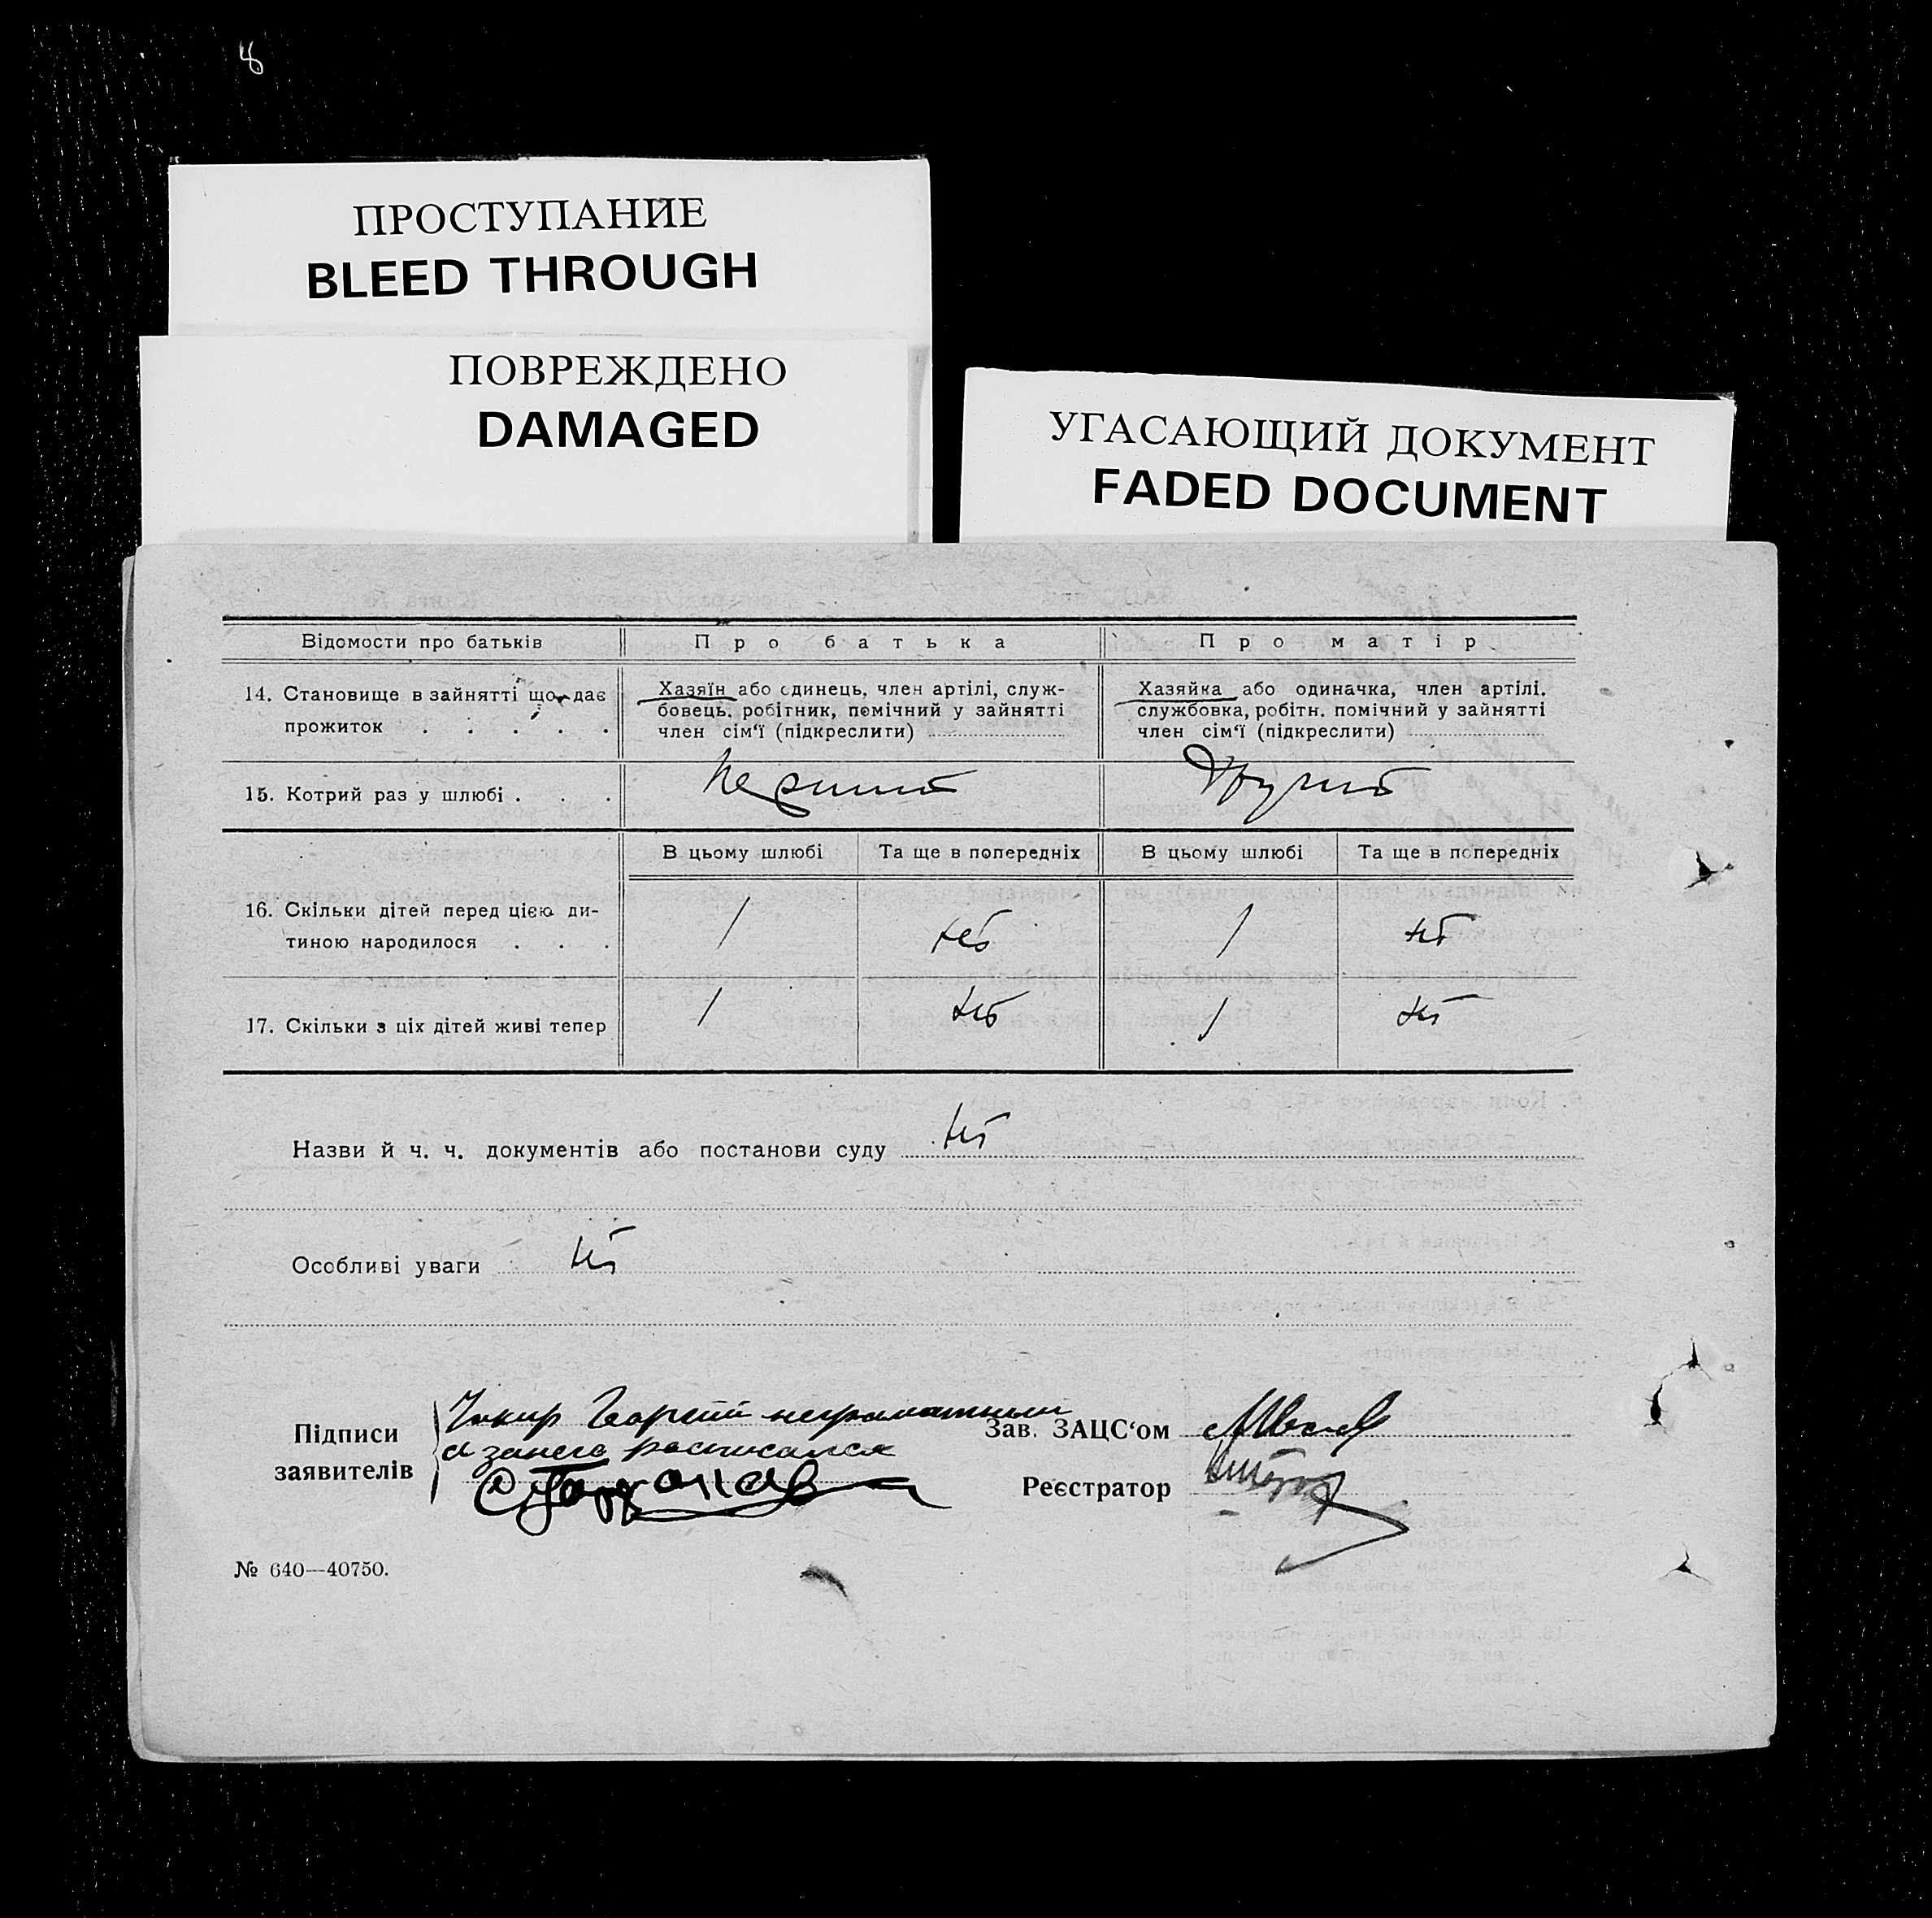 8
ПРОСТУПАНИЕ
BLEED THROUGH
ПОВРЕЖДЕНО
DAMAGED
УГАСАЮЩИЙ ДОКУМЕНТ
FADED DOCUMENT
Відомости про батьків
Про батька
Про матір
14. Становище в зайнятті що дає
прожиток . . . . .
Хазяїн або єдинець, член артілі, служ-
бовець, робітник, помічний у зайнятті
член сім'ї (підкреслити)
Хазяйка або одиначка, член артілі,
службовка, робітн. помічний у зайнятті
член сім'ї (підкреслити)
15. Котрий раз у шлюбі . . .
Перший
Другий
В цьому шлюбі
Та ще в попередніх
В цьому шлюбі
Та ще в попередніх
16. Скільки дітей перед цією ди-
тиною народилося . . .
1
ні
1
ні
17. Скільки з ціх дітей живі тепер
1
ні
1
ні
Назви й ч. ч. документів або постанови суду ні
Особливі уваги ні
Підписи
заявителів
Георгий неграматний
а за него расписался
Зав. ЗАЦС'ом
Реєстратор
№ 640—40750.